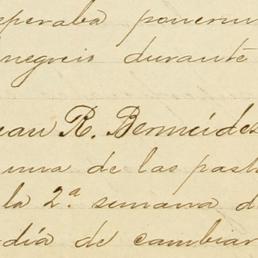 eperaba ponerme
negreis durante
ean R. Bermúdez
una de las past
la 2.ª semana d
día de cambiar